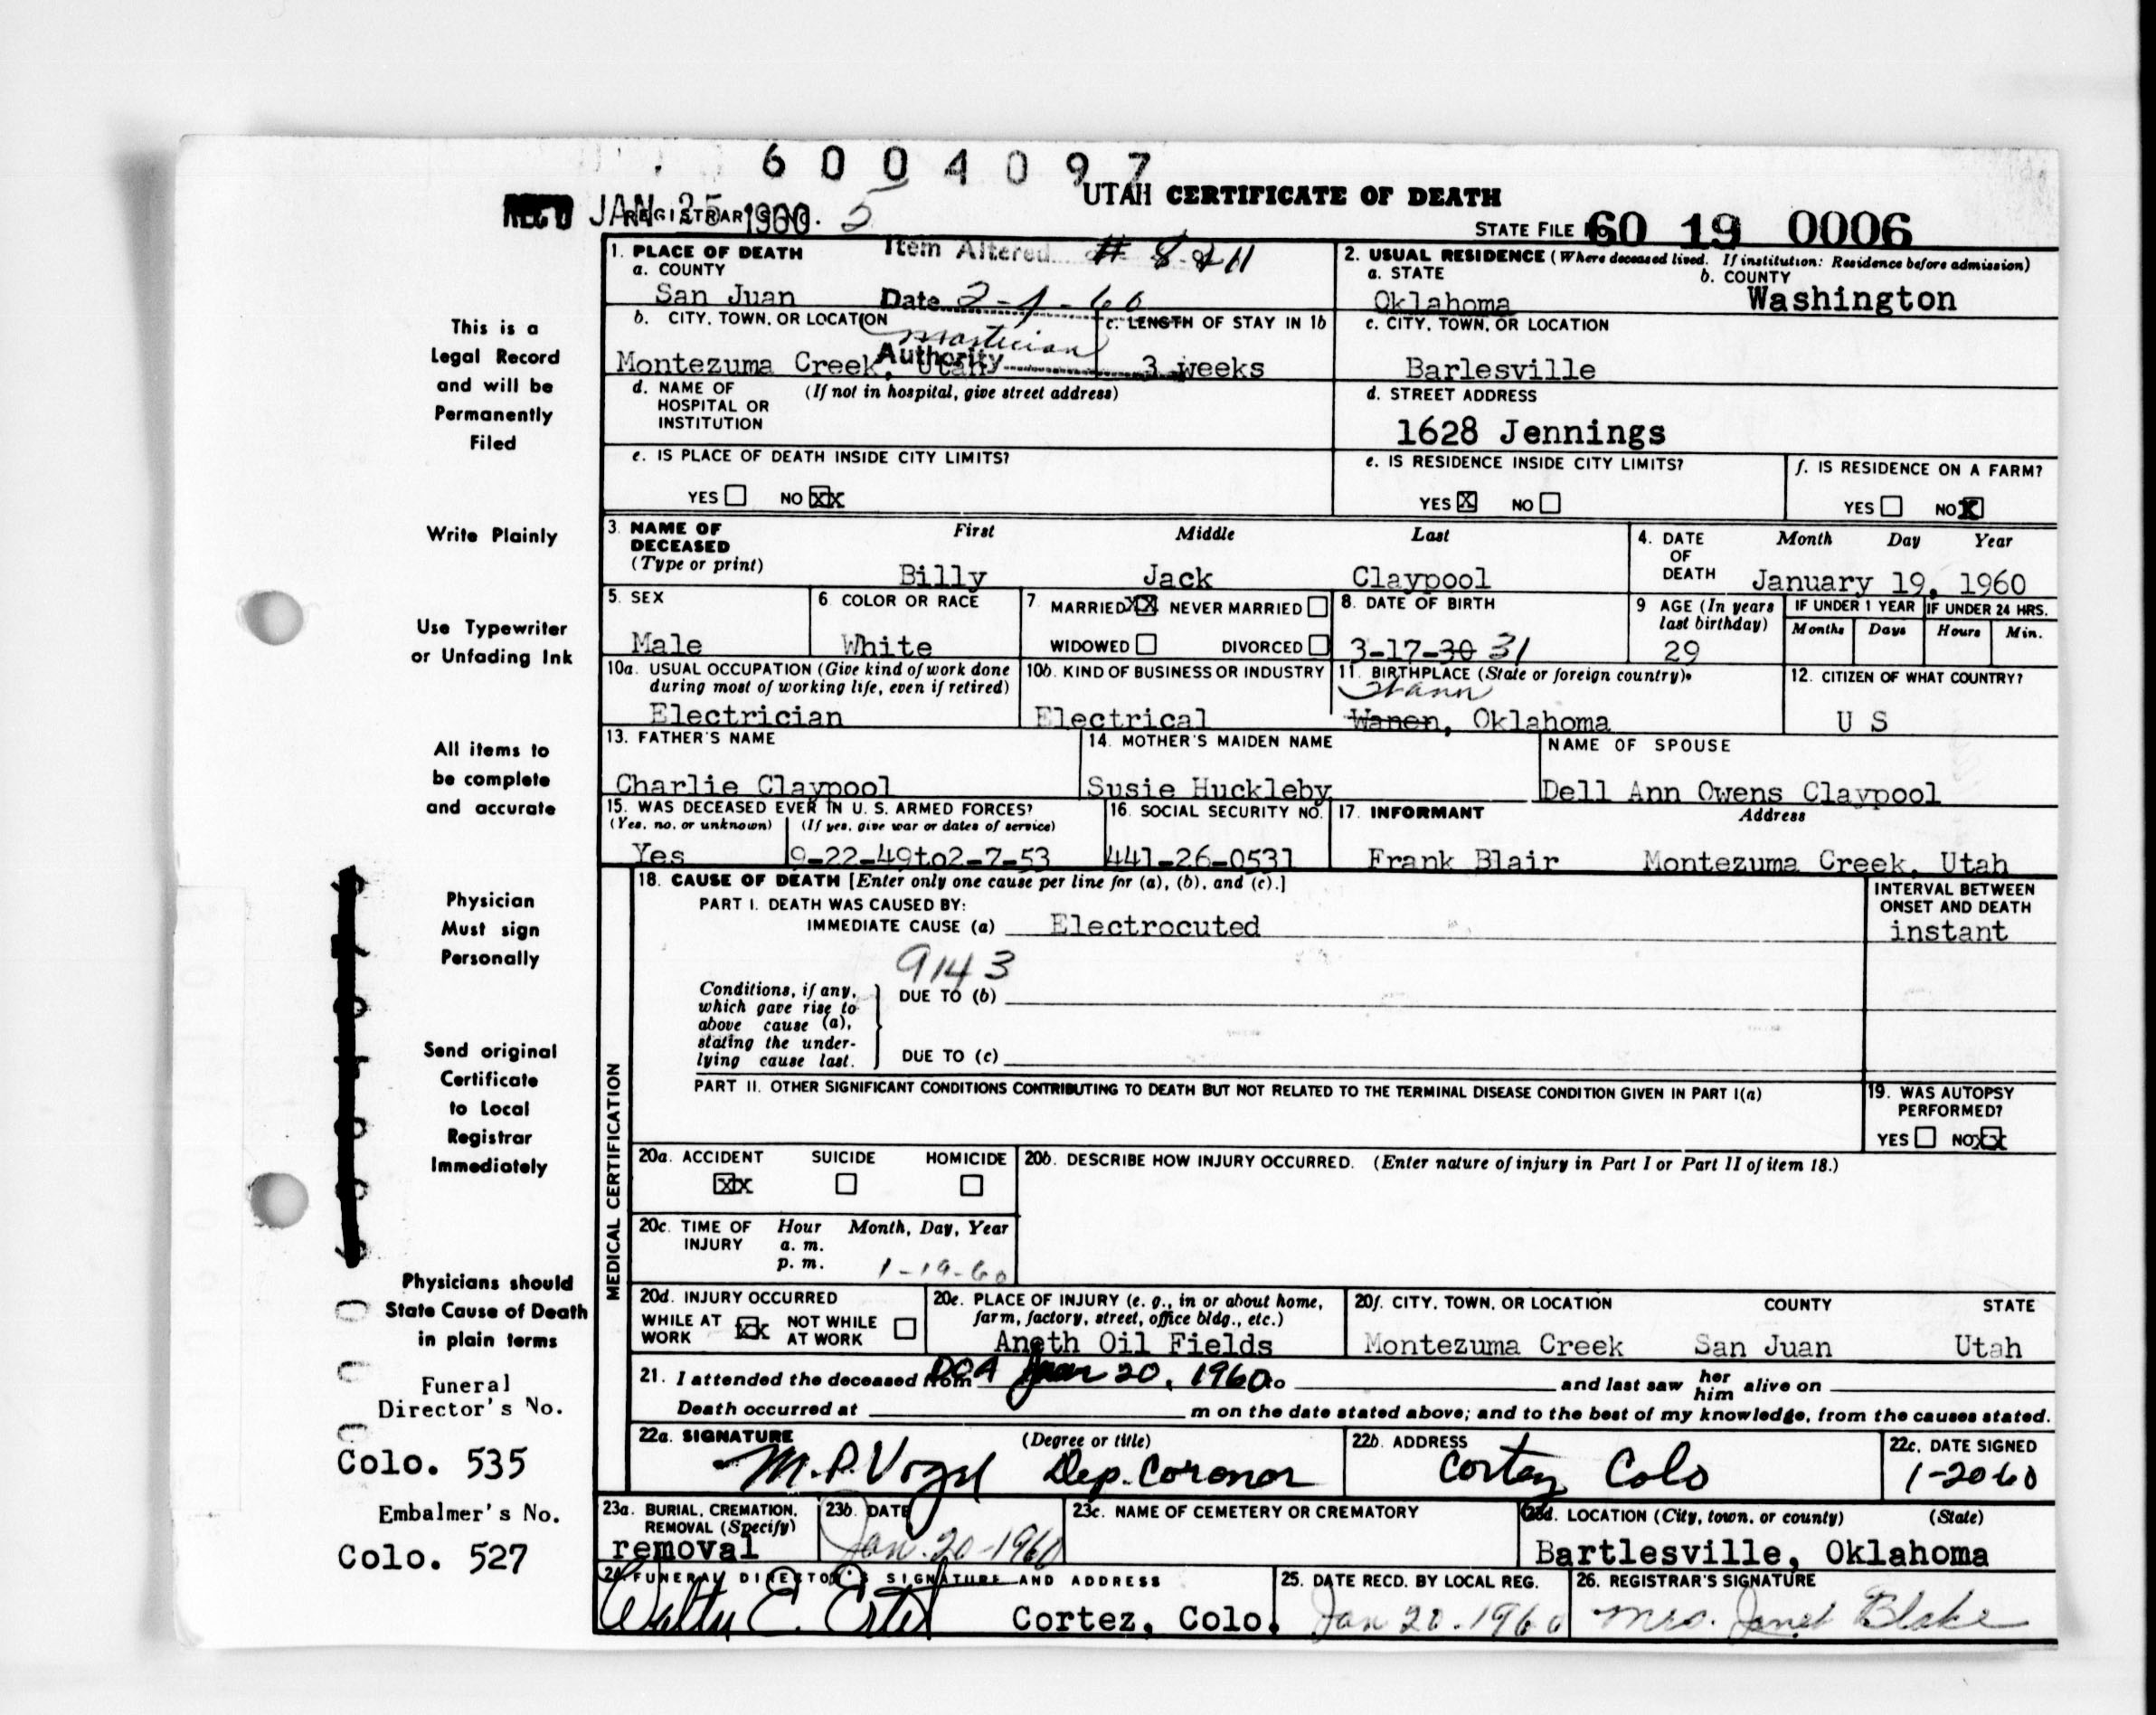 6004097
UTAH CERTIFICATE OF DEATH
REC'D JAN 25 1960
REGISTRAR'S NO. 5
STATE FILE NO. 60 19 0006
Item Altered # 8 & 11
Date 2-1-60
Authority Mortician
1. PLACE OF DEATH
a. COUNTY
San Juan
b. CITY, TOWN, OR LOCATION
Montezuma Creek, Utah
c. LENGTH OF STAY IN 1b
3 weeks
d. NAME OF HOSPITAL OR INSTITUTION (If not in hospital, give street address)
e. IS PLACE OF DEATH INSIDE CITY LIMITS?
YES NO XX
2. USUAL RESIDENCE (Where deceased lived. If institution: Residence before admission)
a. STATE b. COUNTY
Oklahoma Washington
c. CITY, TOWN, OR LOCATION
Barlesville
d. STREET ADDRESS
1628 Jennings
e. IS RESIDENCE INSIDE CITY LIMITS?
YES X NO
f. IS RESIDENCE ON A FARM?
YES NO X
3. NAME OF DECEASED (Type or print)
First Middle Last
Billy Jack Claypool
4. DATE OF DEATH Month Day Year
January 19, 1960
5. SEX
Male
6. COLOR OR RACE
White
7. MARRIED XX NEVER MARRIED
WIDOWED DIVORCED
8. DATE OF BIRTH
3-17-30 31
9. AGE (In years last birthday)
29
IF UNDER 1 YEAR IF UNDER 24 HRS.
Months Days Hours Min.
10a. USUAL OCCUPATION (Give kind of work done during most of working life, even if retired)
Electrician
10b. KIND OF BUSINESS OR INDUSTRY
Electrical
11. BIRTHPLACE (State or foreign country)
Wanen, Oklahoma
12. CITIZEN OF WHAT COUNTRY?
U S
13. FATHER'S NAME
Charlie Claypool
14. MOTHER'S MAIDEN NAME
Susie Huckleby
NAME OF SPOUSE
Dell Ann Owens Claypool
15. WAS DECEASED EVER IN U. S. ARMED FORCES?
(Yes, no, or unknown) (If yes, give war or dates of service)
Yes 9-22-49to2-7-53
16. SOCIAL SECURITY NO.
441-26-0531
17. INFORMANT Address
Frank Blair Montezuma Creek, Utah
MEDICAL CERTIFICATION
18. CAUSE OF DEATH [Enter only one cause per line for (a), (b), and (c).]
PART I. DEATH WAS CAUSED BY:
IMMEDIATE CAUSE (a) Electrocuted
INTERVAL BETWEEN ONSET AND DEATH
instant
9143
Conditions, if any, which gave rise to above cause (a), stating the underlying cause last.
DUE TO (b)
DUE TO (c)
PART II. OTHER SIGNIFICANT CONDITIONS CONTRIBUTING TO DEATH BUT NOT RELATED TO THE TERMINAL DISEASE CONDITION GIVEN IN PART I(a)
19. WAS AUTOPSY PERFORMED?
YES NO XX
20a. ACCIDENT SUICIDE HOMICIDE
XX
20b. DESCRIBE HOW INJURY OCCURRED. (Enter nature of injury in Part I or Part II of item 18.)
20c. TIME OF INJURY Hour Month, Day, Year
a. m.
p. m. 1-19-60
20d. INJURY OCCURRED
WHILE AT WORK XX NOT WHILE AT WORK
20e. PLACE OF INJURY (e. g., in or about home, farm, factory, street, office bldg., etc.)
Aneth Oil Fields
20f. CITY, TOWN, OR LOCATION COUNTY STATE
Montezuma Creek San Juan Utah
21. I attended the deceased from DOA Jan 20, 1960 to and last saw her him alive on
Death occurred at m on the date stated above; and to the best of my knowledge, from the causes stated.
22a. SIGNATURE (Degree or title)
M.P. Vogel Dep. Coroner
22b. ADDRESS
Cortez Colo
22c. DATE SIGNED
1-20-60
23a. BURIAL, CREMATION, REMOVAL (Specify)
removal
23b. DATE
Jan. 20-1960
23c. NAME OF CEMETERY OR CREMATORY
23d. LOCATION (City, town, or county) (State)
Bartlesville, Oklahoma
24. FUNERAL DIRECTOR'S SIGNATURE AND ADDRESS
Walter E. Ertel Cortez, Colo.
25. DATE RECD. BY LOCAL REG.
Jan 20-1960
26. REGISTRAR'S SIGNATURE
Mrs. Janet Blake
This is a
Legal Record
and will be
Permanently
Filed
Write Plainly
Use Typewriter
or Unfading Ink
All items to
be complete
and accurate
Physician
Must sign
Personally
Send original
Certificate
to Local
Registrar
Immediately
Physicians should
State Cause of Death
in plain terms
Funeral
Director's No.
Colo. 535
Embalmer's No.
Colo. 527